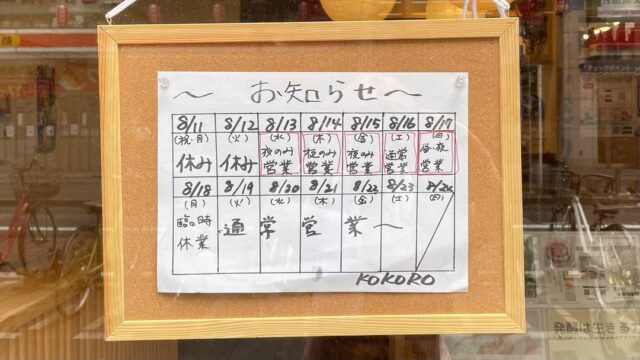 〜 お知らせ 〜
8/11 8/12 8/13 8/14 8/15 8/16 8/17
(祝・月) (火) (水) (木) (金) (土) (日)
休み 休み 夜のみ営業 夜のみ営業 夜のみ営業 通常営業 昼・夜営業
8/18 8/19 8/20 8/21 8/22 8/23 8/24
(月) (火) (水) (木) (金) (土) (日)
臨時休業 通常営業〜
KOKORO
発酵は生きる力